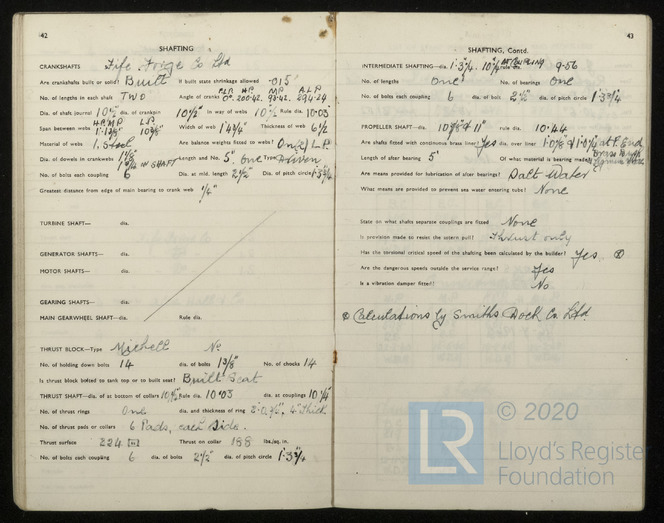 42
SHAFTING
CRANKSHAFTS Fife Forge Co Ltd
Are crankshafts built or solid? Built If built state shrinkage allowed .015"
No. of lengths in each shaft TWO Angle of cranks
Dia. of shaft journal dia. of crankpin 10½" In way of webs 10½" Rule dia. 10.03"
Span between webs Width of web 1'4¾" Thickness of web 6½
Material of webs Are balance weights fitted to webs? One L.P.
Dia. of dowels in crankwebs IN SHAFT Length and No. 5" One Type Driven
No. of bolts each coupling 6 Dia. at mid. length 2½" Dia. of pitch circle 1'3¾
Greatest distance from edge of main bearing to crank web ¼"
TURBINE SHAFT— dia.
GENERATOR SHAFTS— dia.
MOTOR SHAFTS— dia.
GEARING SHAFTS— dia.
MAIN GEARWHEEL SHAFT— dia. Rule dia.
THRUST BLOCK—Type Michell No
No. of holding down bolts 14 dia. of bolts 1⅜" No. of chocks 14
Is thrust block bolted to tank top or to built seat? Built Seat
THRUST SHAFT—dia. of at bottom of collars Rule dia. 10.03 dia. at couplings 10¼"
No. of thrust rings One dia. and thickness of ring Thick
No. of thrust pads or collars 6 Pads, each side.
Thrust surface 224 Thrust on collar 188 lbs./sq. in.
No. of bolts each coupling 6 dia. of bolts 2½" dia. of pitch circle 1.3¾
43
SHAFTING, Contd.
INTERMEDIATE SHAFTING—dia. rule dia. 9.56
No. of lengths One No. of bearings One
No. of bolts each coupling 6 dia. of bolts 2½" dia. of pitch circle 1.3¾
PROPELLER SHAFT—dia. 10⅞ & 11" rule dia. 10.44
Are shafts fitted with continuous brass liner? Yes dia. over liner at F. End
Length of after bearing 5' Of what material is bearing made?
Are means provided for lubrication of after bearings? Salt Water
What means are provided to prevent sea water entering tube? None
State on what shafts separate couplings are fitted None
Is provision made to resist the astern pull? Thrust only
Has the torsional critical speed of the shafting been calculated by the builder? Yes.
Are the dangerous speeds outside the service range? Yes
Is a vibration damper fitted? No
Calculations by Smiths Dock Co. Ltd.
© 2020
LR
Lloyd's Register
Foundation